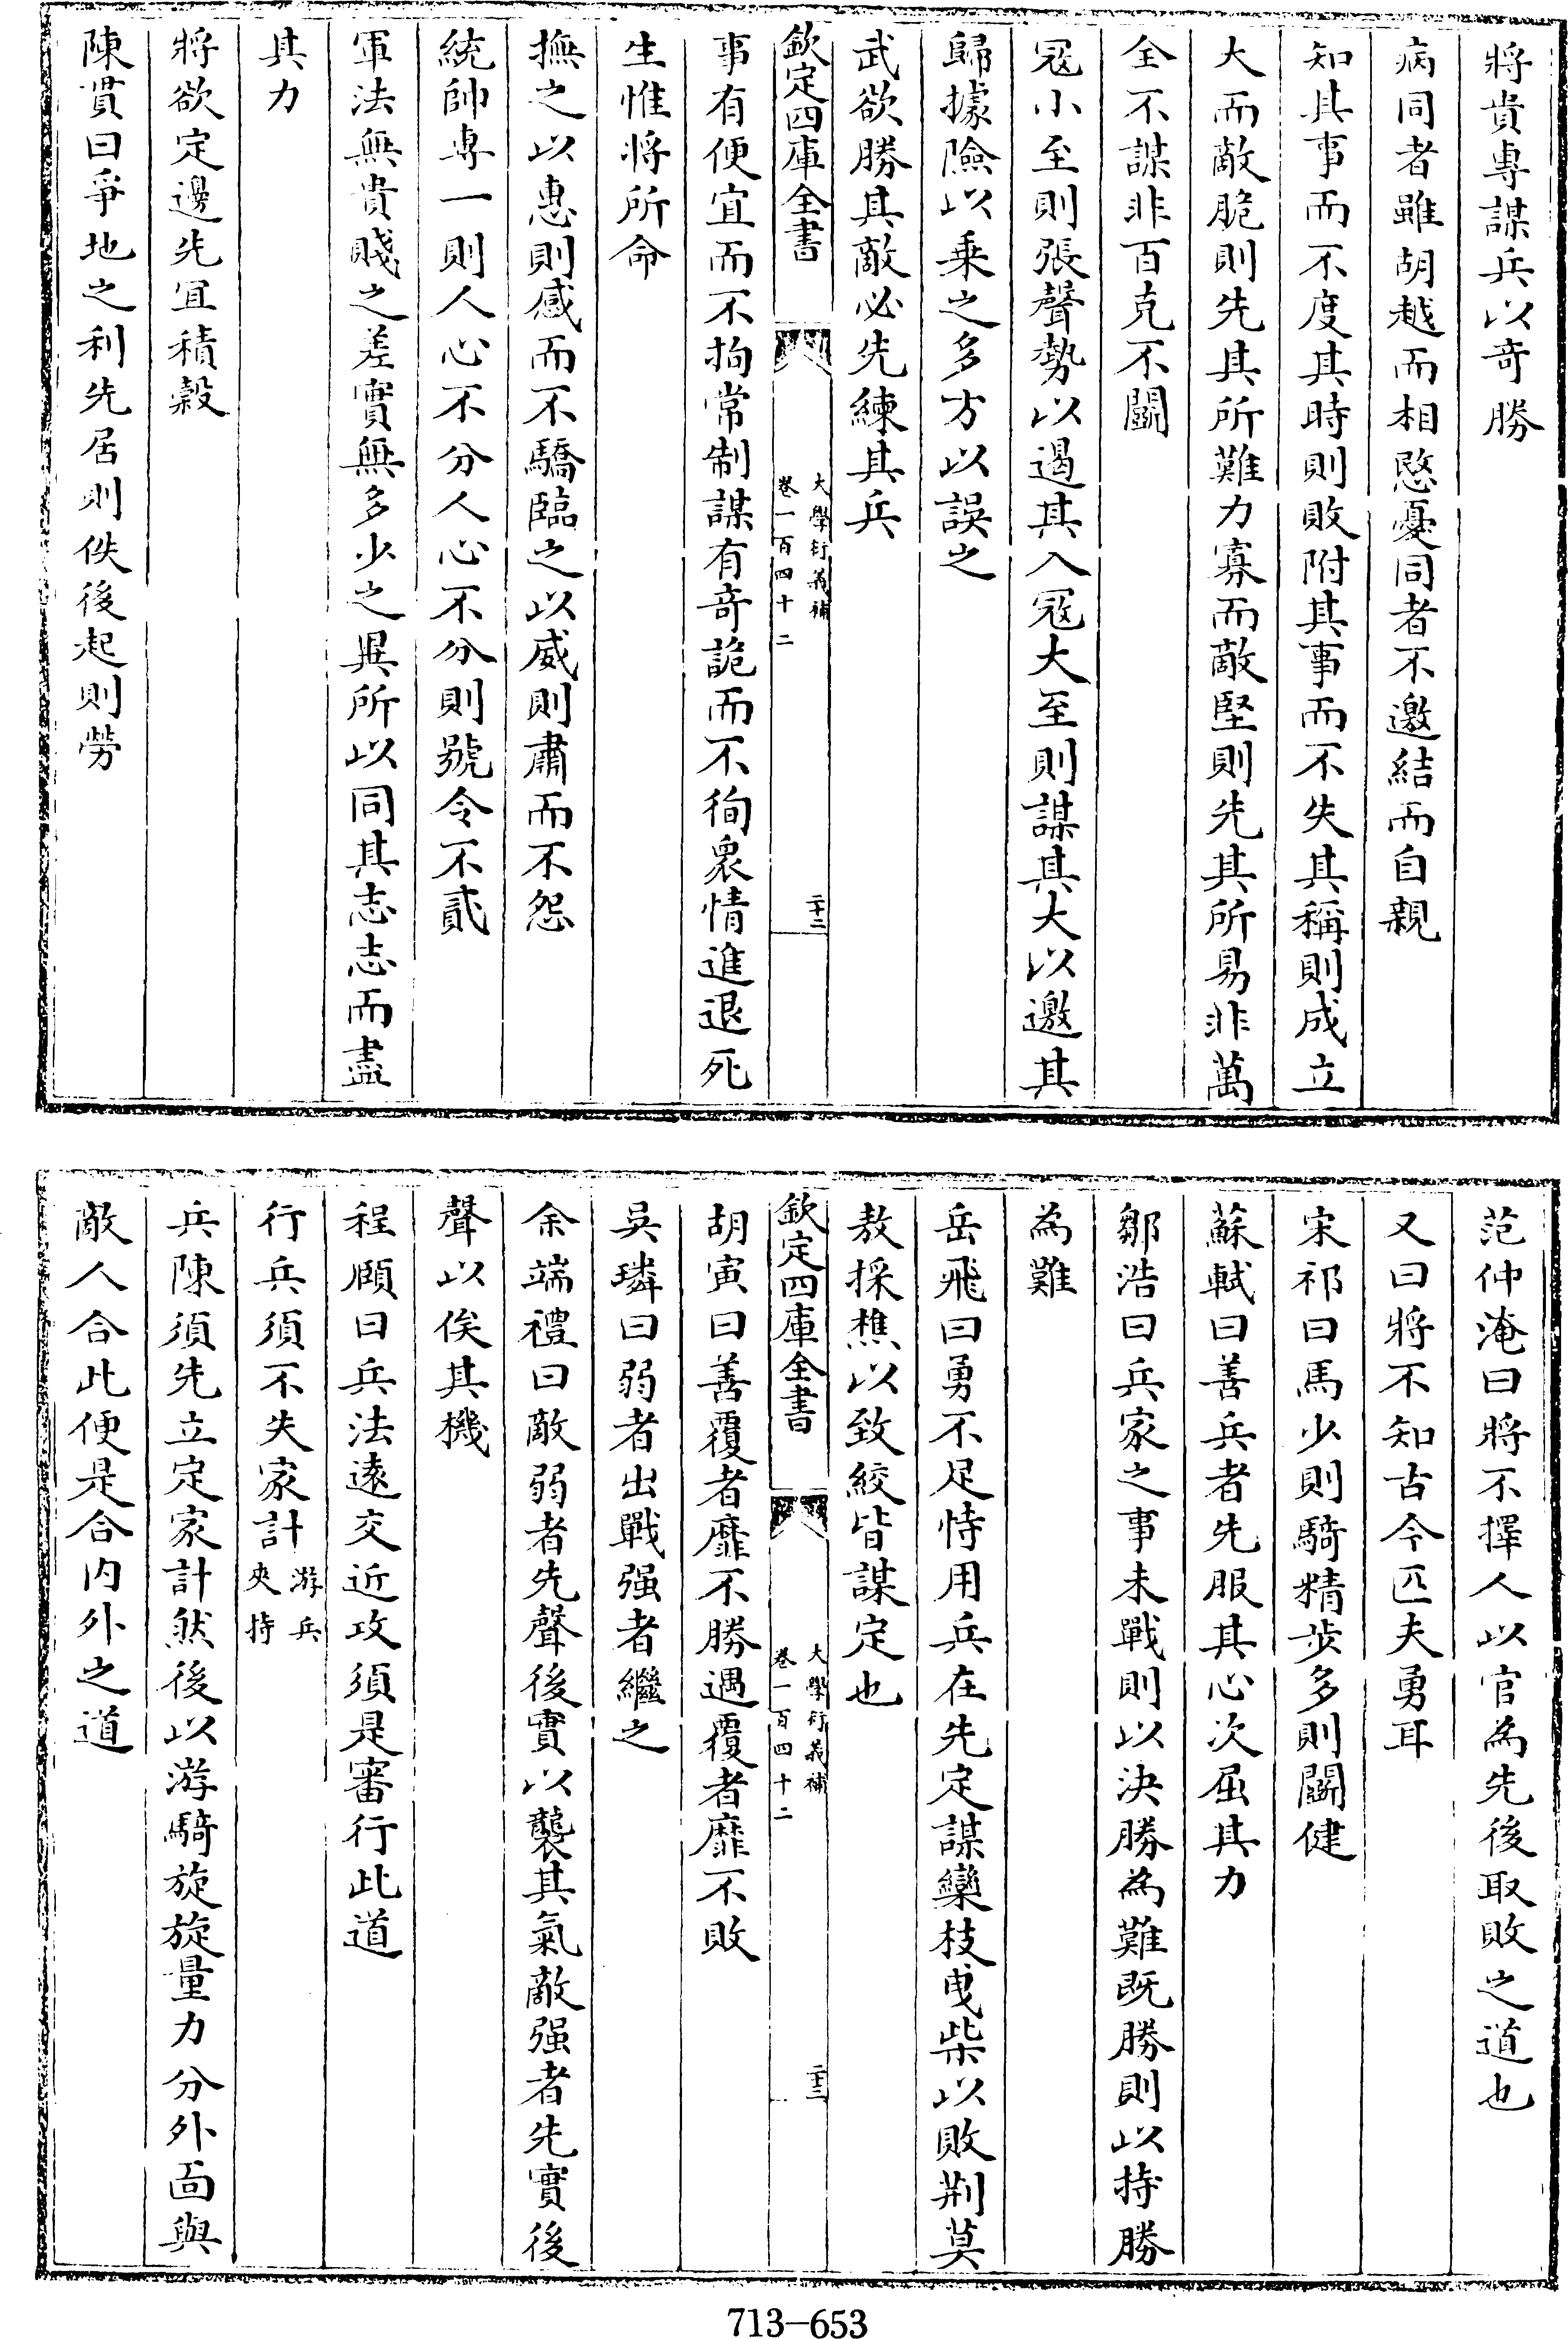 將貴專謀兵以奇勝
病同者雖胡越而相愍憂同者不邀結而自親
知其事而不度其時則敗附其事而不失其稱則成立
大而敵脆則先其所難力寡而敵堅則先其所易非萬
全不謀非百克不鬭
寇小至則張聲勢以遏其入寇大至則謀其大以邀其
歸據險以乗之多方以誤之
武欲勝其敵必先練其兵
欽定四庫全書
大學衍義補
卷一百四十二
二十二
事有便宜而不拘常制謀有奇詭而不徇衆情進退死
生惟將所命
撫之以惠則感而不驕臨之以威則肅而不怨
統帥専一則人心不分人心不分則號令不貳
軍法無貴賤之差實無多少之異所以同其志志而盡
其力
將欲定邊先宜積穀
陳貫曰爭地之利先居則佚後起則勞
范仲淹曰將不擇人以官為先後取敗之道也
又曰將不知古今匹夫勇耳
宋祁曰馬少則騎精步多則鬭健
蘇軾曰善兵者先服其心次屈其力
鄒浩曰兵家之事未戰則以決勝為難既勝則以持勝
為難
岳飛曰勇不足恃用兵在先定謀欒枝曵柴以敗荆莫
敖採樵以致絞皆謀定也
欽定四庫全書
大學衍義補
卷一百四十二
二十三
胡寅曰善覆者靡不勝遇覆者靡不敗
吳璘曰弱者出戰强者繼之
余端禮曰敵弱者先聲後實以襲其氣敵强者先實後
聲以俟其機
程頤曰兵法逺交近攻須是審行此道
行兵須不失家計游兵夾持
兵陳須先立定家計然後以游騎旋旋量力分外靣與
敵人合此便是合内外之道
713-653